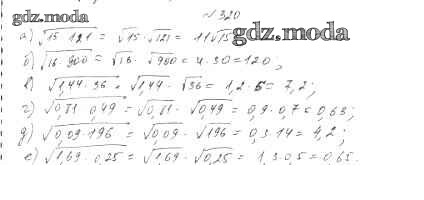 gdz.moda
№ 320
а) √15·121 = √15·√121 = 11√15
gdz.moda
б) √16·900 = √16·√900 = 4·30=120;
в) √1,44·36 = √1,44·√36 = 1,2·6= 7,2;
г) √0,81·0,49 = √0,81·√0,49 = 0,9·0,7=0,63;
д) √0,09·196 = √0,09·√196 = 0,3·14= 4,2;
е) √1,69·0,25 = √1,69·√0,25 = 1,3·0,5=0,65.